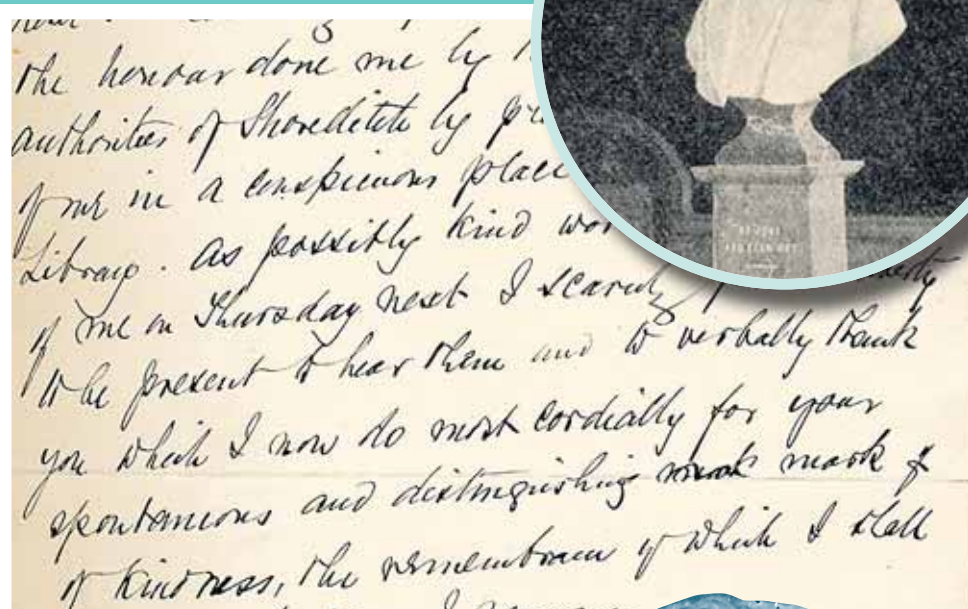 the honour done me by
authorities of Shoreditch by
of me in a conspicuous place
Library. As possibly kind
of me on Thursday next I scarcely
to be present to hear them and to verbally thank
you which I now do most cordially for your
spontaneous and distinguishing mark mark &
of kindness, the remembrance of which I shall